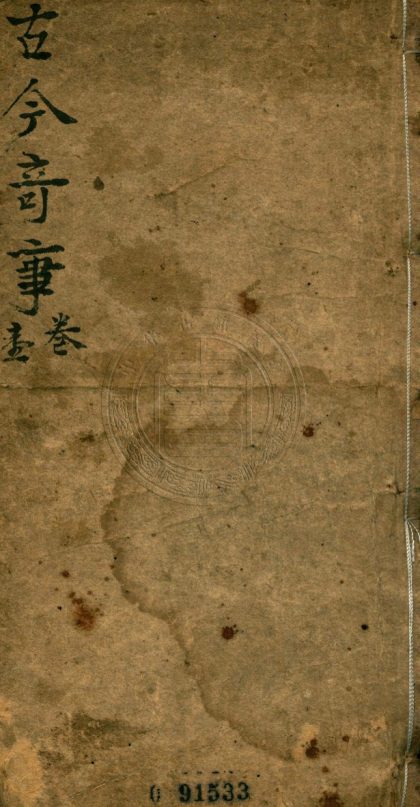 古今竒事
卷
壹
0 91533